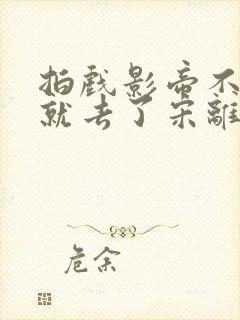 拍戏影帝不
就去了宋離
危余